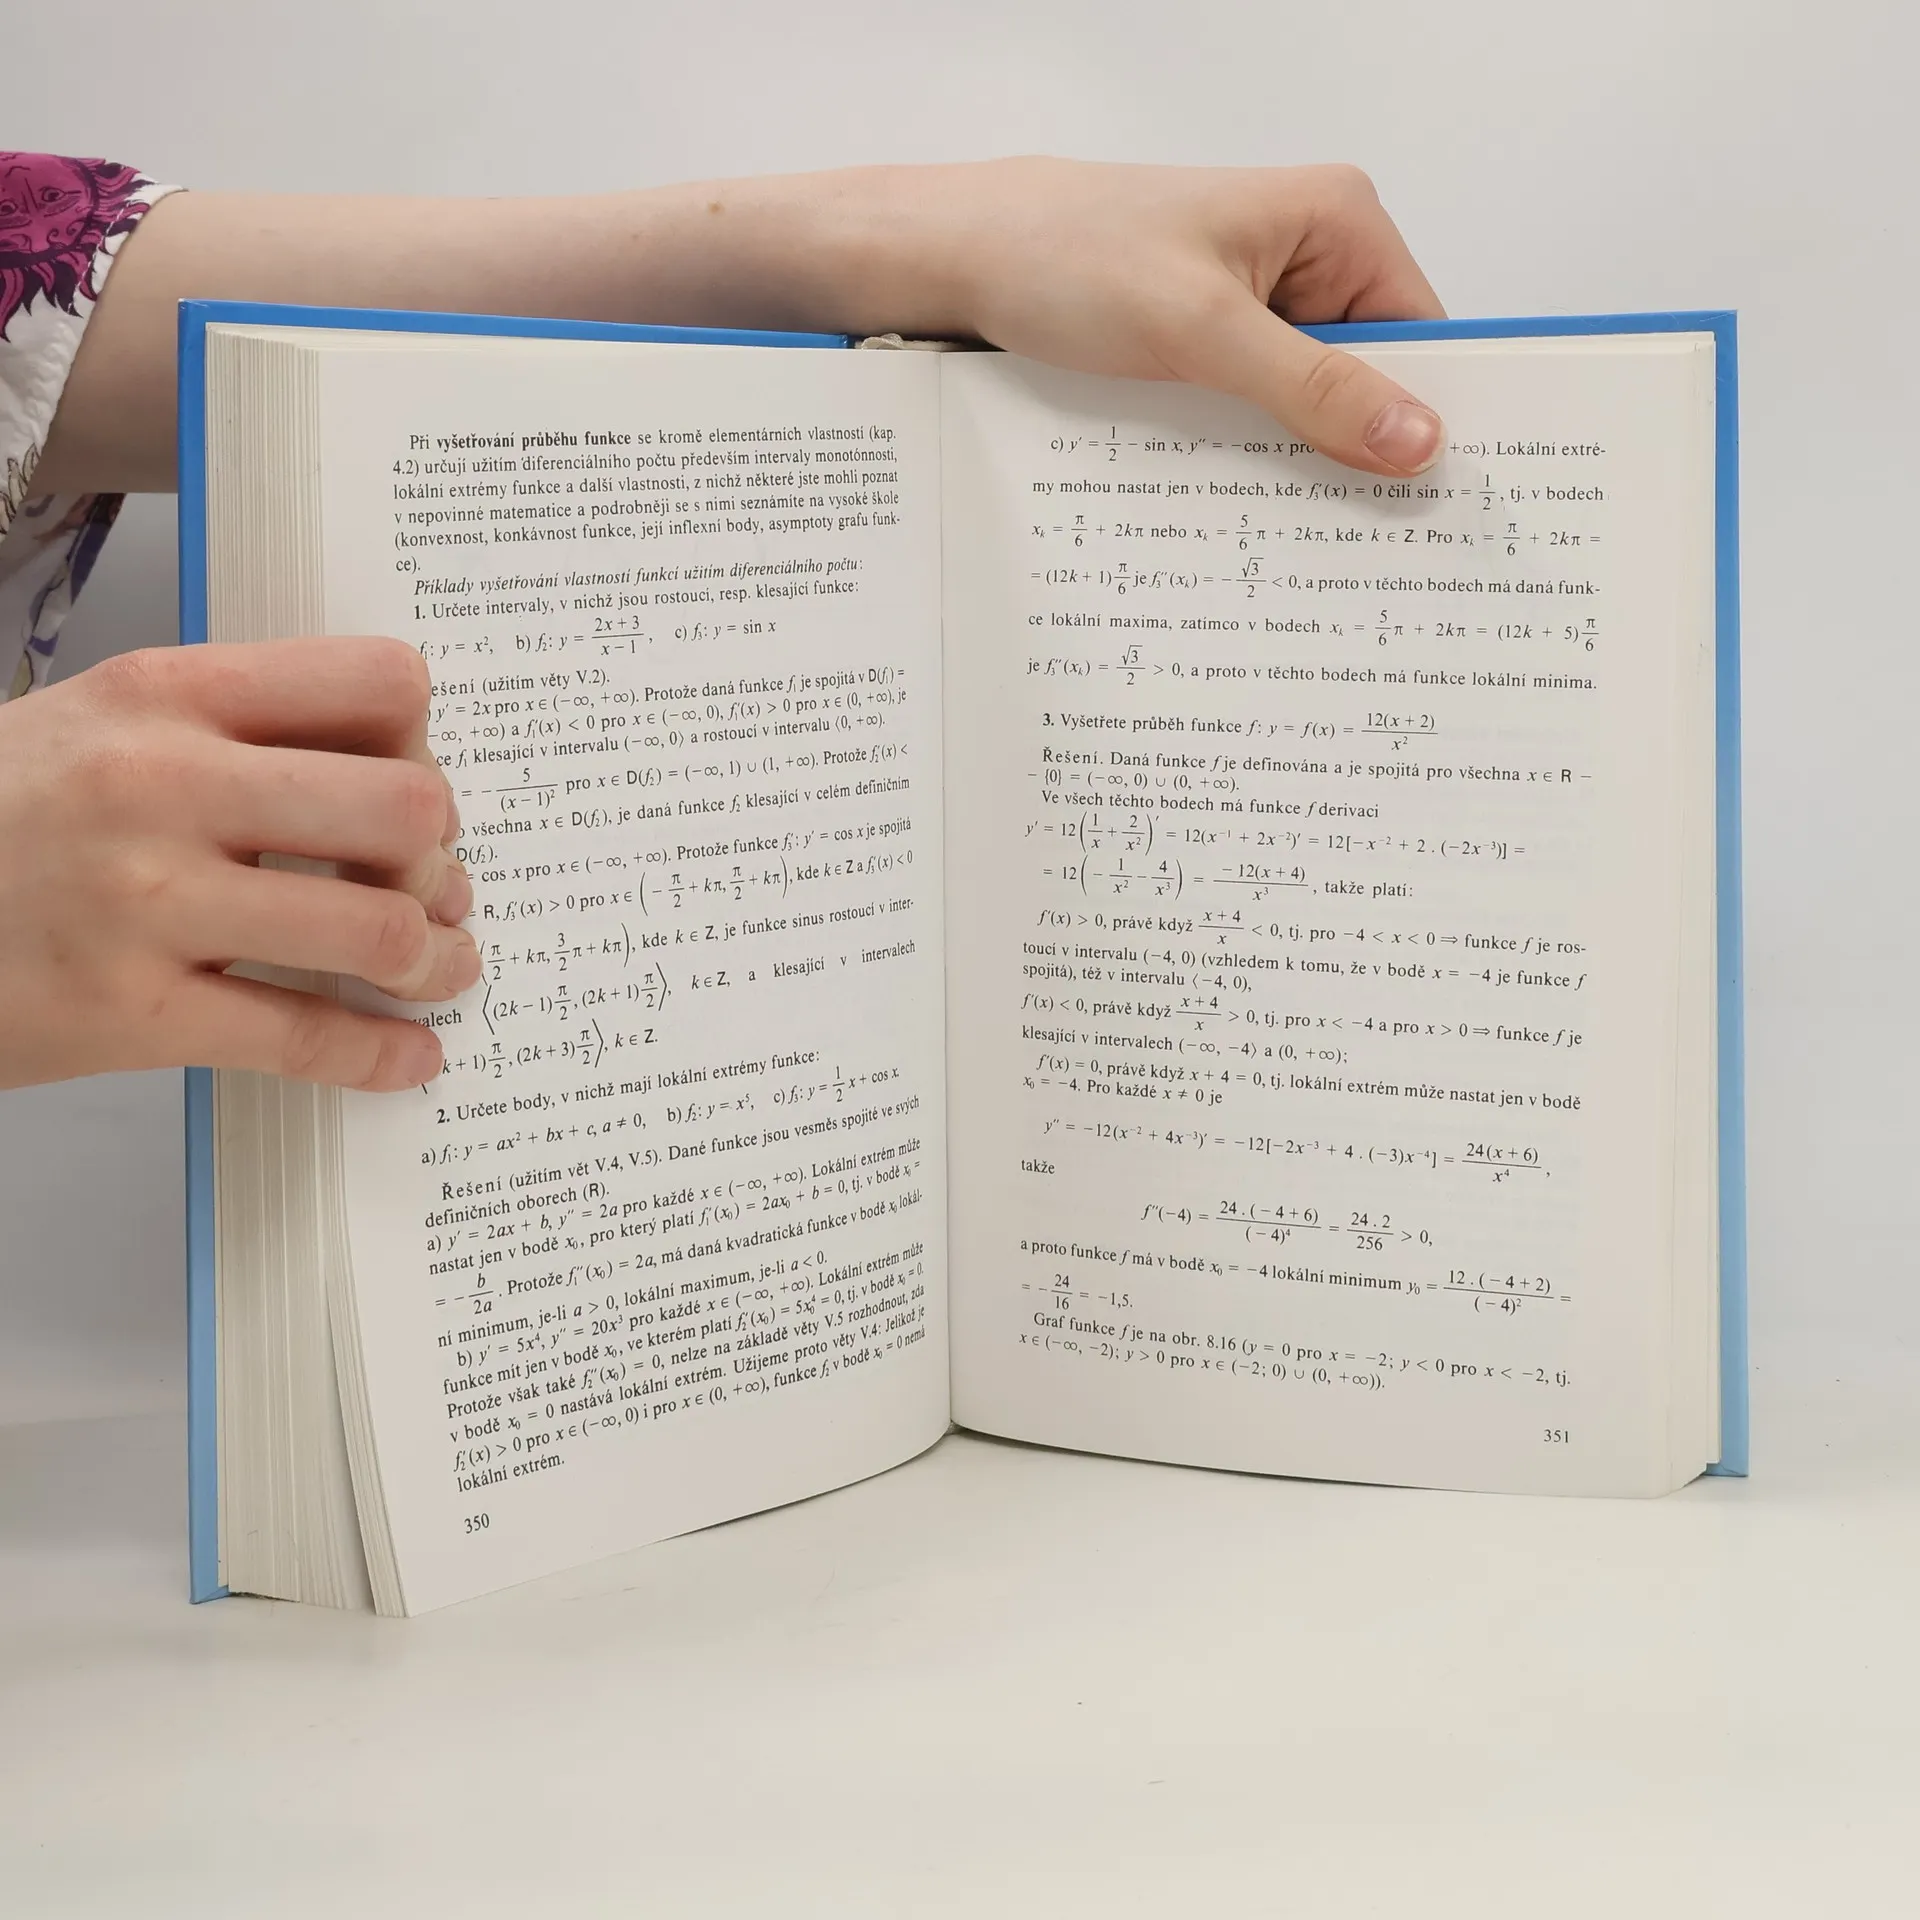 Při vyšetřování průběhu funkce se kromě elementárních vlastností (kap.
4.2) určují užitím diferenciálního počtu především intervaly monotónnosti,
lokální extrémy funkce a další vlastnosti, z nichž některé jste mohli poznat
v nepovinné matematice a podrobněji se s nimi seznámíte na vysoké škole
(konvexnost, konkávnost funkce, její inflexní body, asymptoty grafu funk-
ce).
Příklady vyšetřování vlastností funkcí užitím diferenciálního počtu:
1. Určete intervaly, v nichž jsou rostoucí, resp. klesající funkce:
f₁: y = x², b) f₂: y = (2x + 3)/(x − 1), c) f₃: y = sin x
ešení (užitím věty V.2).
) y′ = 2x pro x ∈ (−∞, +∞). Protože daná funkce f₁ je spojitá v D(f₁) =
−∞, +∞) a f₁′(x) < 0 pro x ∈ (−∞, 0), f₁′(x) > 0 pro x ∈ (0, +∞), je
ce f₁ klesající v intervalu (−∞, 0⟩ a rostoucí v intervalu ⟨0, +∞).
= − 5/(x − 1)² pro x ∈ D(f₂) = (−∞, 1) ∪ (1, +∞). Protože f₂′(x) <
všechna x ∈ D(f₂), je daná funkce f₂ klesající v celém definičním
D(f₂).
= cos x pro x ∈ (−∞, +∞). Protože funkce f₃′: y′ = cos x je spojitá
= R, f₃′(x) > 0 pro x ∈ (− π/2 + kπ, π/2 + kπ), kde k ∈ Z a f₃′(x) < 0
(π/2 + kπ, 3/2 π + kπ), kde k ∈ Z, je funkce sinus rostoucí v inter-
valech ⟨(2k − 1) π/2, (2k + 1) π/2⟩, k ∈ Z, a klesající v intervalech
k + 1) π/2, (2k + 3) π/2⟩, k ∈ Z.
2. Určete body, v nichž mají lokální extrémy funkce:
a) f₁: y = ax² + bx + c, a ≠ 0, b) f₂: y = x⁵, c) f₃: y = 1/2 x + cos x
Řešení (užitím vět V.4, V.5). Dané funkce jsou vesměs spojité ve svých
definičních oborech (R).
a) y′ = 2ax + b, y″ = 2a pro každé x ∈ (−∞, +∞). Lokální extrém může
nastat jen v bodě x₀, pro který platí f₁′(x₀) = 2ax₀ + b = 0, tj. v bodě x₀ =
= − b/2a. Protože f₁″(x₀) = 2a, má daná kvadratická funkce v bodě x₀ lokál-
ní minimum, je-li a > 0, lokální maximum, je-li a < 0.
b) y′ = 5x⁴, y″ = 20x³ pro každé x ∈ (−∞, +∞). Lokální extrém může
funkce mít jen v bodě x₀, ve kterém platí f₂′(x₀) = 5x₀⁴ = 0, tj. v bodě x₀ = 0.
Protože však také f₂″(x₀) = 0, nelze na základě věty V.5 rozhodnout, zda
v bodě x₀ = 0 nastává lokální extrém. Užijeme proto věty V.4: Jelikož je
f₂′(x) > 0 pro x ∈ (−∞, 0) i pro x ∈ (0, +∞), funkce f₂ v bodě x₀ = 0 nemá
lokální extrém.
350
c) y′ = 1/2 − sin x, y″ = −cos x pro +∞). Lokální extré-
my mohou nastat jen v bodech, kde f₃′(x) = 0 čili sin x = 1/2, tj. v bodech
xₖ = π/6 + 2kπ nebo xₖ = 5/6 π + 2kπ, kde k ∈ Z. Pro xₖ = π/6 + 2kπ =
= (12k + 1) π/6 je f₃″(xₖ) = − √3/2 < 0, a proto v těchto bodech má daná funk-
ce lokální maxima, zatímco v bodech xₖ = 5/6 π + 2kπ = (12k + 5) π/6
je f₃″(xₖ) = √3/2 > 0, a proto v těchto bodech má funkce lokální minima.
3. Vyšetřete průběh funkce f: y = f(x) = 12(x + 2)/x²
Řešení. Daná funkce f je definována a je spojitá pro všechna x ∈ R −
− {0} = (−∞, 0) ∪ (0, +∞).
Ve všech těchto bodech má funkce f derivaci
y′ = 12(1/x + 2/x²)′ = 12(x⁻¹ + 2x⁻²)′ = 12[−x⁻² + 2 . (−2x⁻³)] =
= 12(− 1/x² − 4/x³) = −12(x + 4)/x³, takže platí:
f′(x) > 0, právě když (x + 4)/x < 0, tj. pro −4 < x < 0 ⇒ funkce f je ros-
toucí v intervalu (−4, 0) (vzhledem k tomu, že v bodě x = −4 je funkce f
spojitá), též v intervalu ⟨−4, 0),
f′(x) < 0, právě když (x + 4)/x > 0, tj. pro x < −4 a pro x > 0 ⇒ funkce f je
klesající v intervalech (−∞, −4⟩ a (0, +∞);
f′(x) = 0, právě když x + 4 = 0, tj. lokální extrém může nastat jen v bodě
x₀ = −4. Pro každé x ≠ 0 je
y″ = −12(x⁻² + 4x⁻³)′ = −12[−2x⁻³ + 4 . (−3)x⁻⁴] = 24(x + 6)/x⁴,
takže
f″(−4) = 24 . (−4 + 6)/(−4)⁴ = 24 . 2/256 > 0,
a proto funkce f má v bodě x₀ = −4 lokální minimum y₀ = 12 . (−4 + 2)/(−4)² =
= − 24/16 = −1,5.
Graf funkce f je na obr. 8.16 (y = 0 pro x = −2; y < 0 pro x < −2, tj.
x ∈ (−∞, −2); y > 0 pro x ∈ (−2; 0) ∪ (0, +∞)).
351